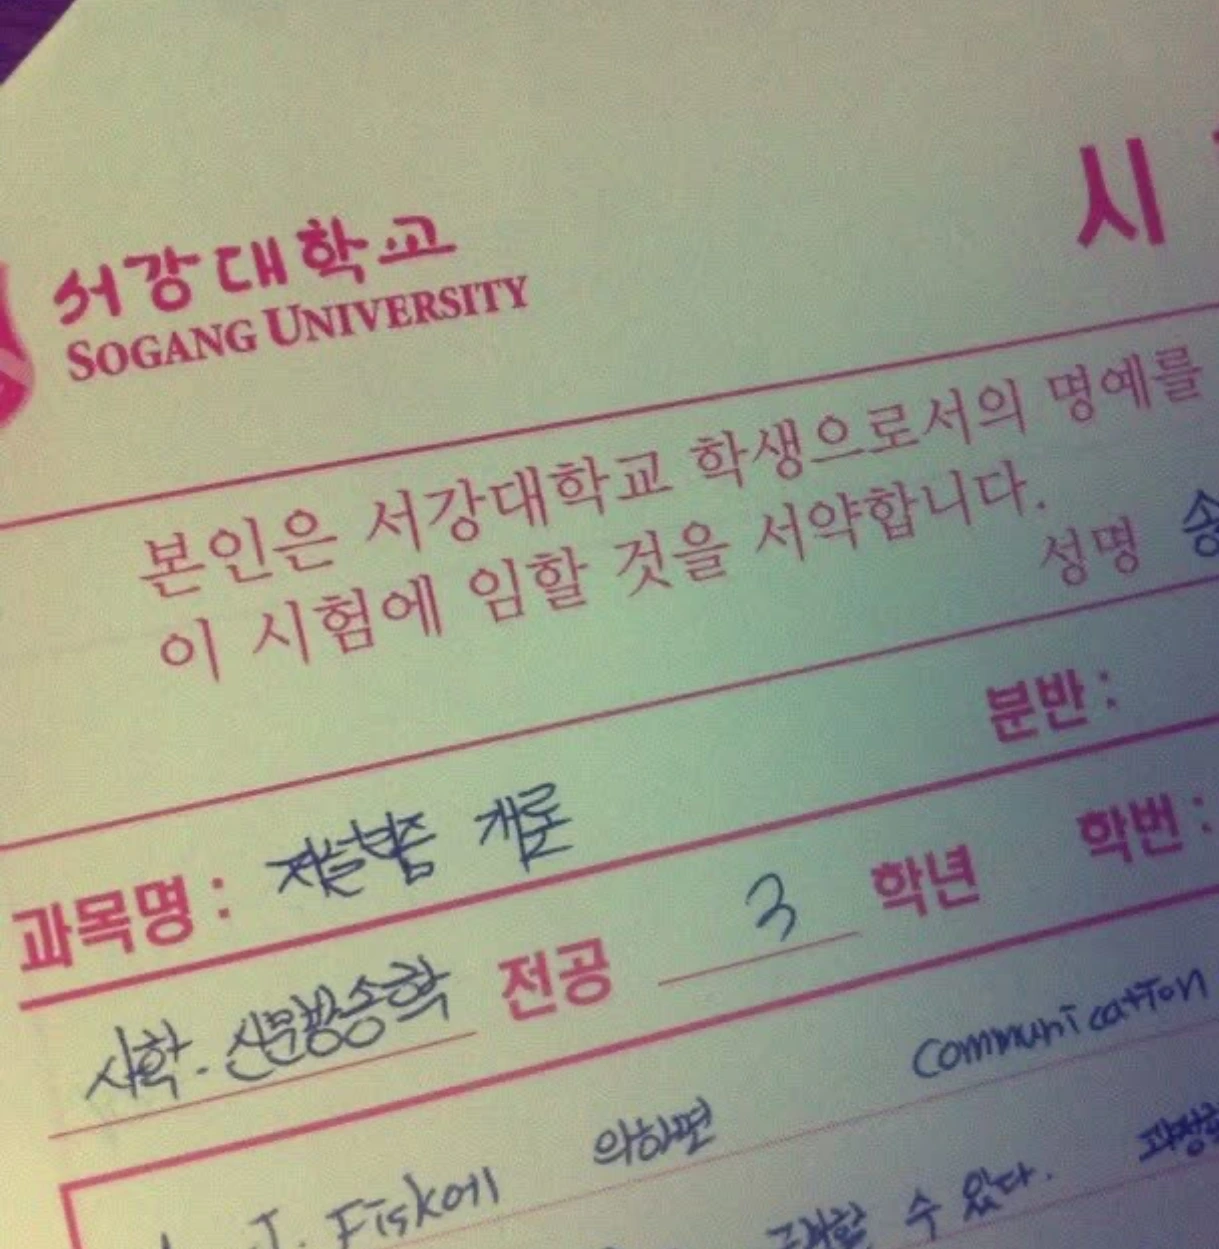 시
서강대학교
SOGANG UNIVERSITY
본인은 서강대학교 학생으로서의 명예를
이 시험에 임할 것을 서약합니다.
성명 송
분반 :
과목명 : 저널리즘 개론
사학. 신문방송학 전공 3 학년 학번 :
J. Fisk에 의하면 Communication
수 있다.